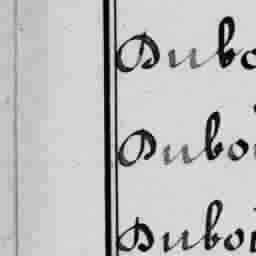 Dubo
Duboi
Duboi